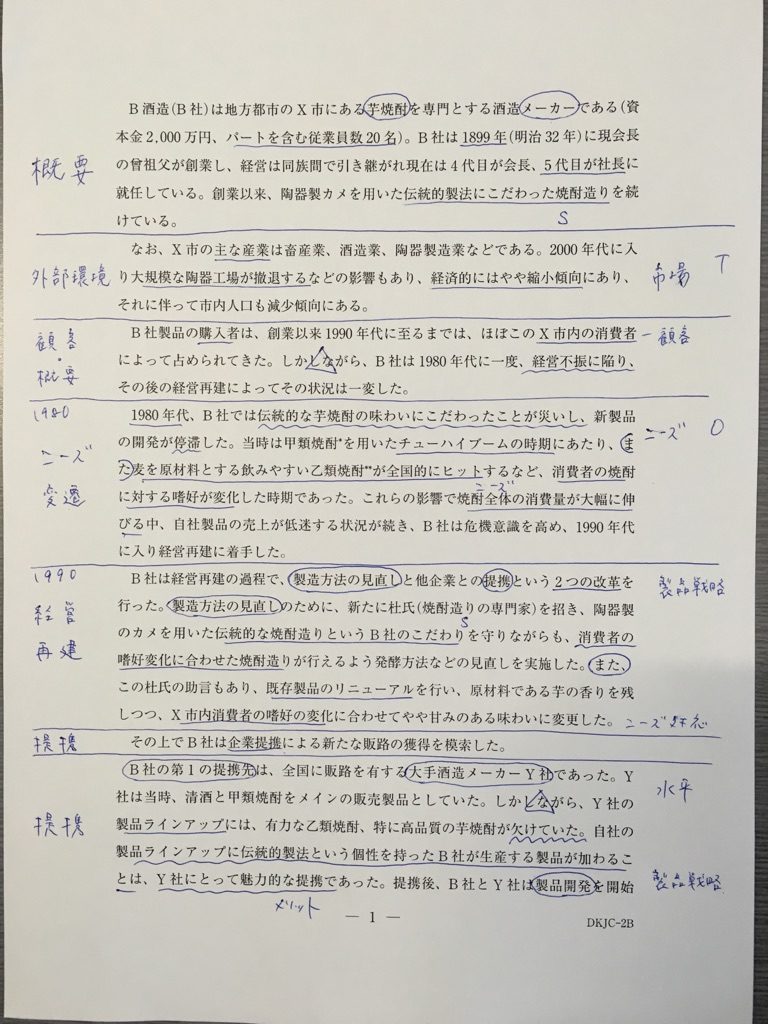 B酒造(B社)は地方都市のX市にある芋焼酎を専門とする酒造メーカーである(資
本金2,000万円、パートを含む従業員数20名)。B社は1899年(明治32年)に現会長
概要
の曾祖父が創業し、経営は同族間で引き継がれ現在は4代目が会長、5代目が社長に
就任している。創業以来、陶器製カメを用いた伝統的製法にこだわった焼酎造りを続
けている。
S
なお、X市の主な産業は畜産業、酒造業、陶器製造業などである。2000年代に入
外部環境
り大規模な陶器工場が撤退するなどの影響もあり、経済的にはやや縮小傾向にあり、
市場 T
それに伴って市内人口も減少傾向にある。
顧客・概要
B社製品の購入者は、創業以来1990年代に至るまでは、ほぼこのX市内の消費者
顧客
によって占められてきた。しかしながら、B社は1980年代に一度、経営不振に陥り、
その後の経営再建によってその状況は一変した。
1980
ニーズ
変遷
1980年代、B社では伝統的な芋焼酎の味わいにこだわったことが災いし、新製品
の開発が停滞した。当時は甲類焼酎*を用いたチューハイブームの時期にあたり、ま
ニーズ O
た麦を原材料とする飲みやすい乙類焼酎**が全国的にヒットするなど、消費者の焼酎
に対する嗜好が変化した時期であった。これらの影響で焼酎全体の消費量が大幅に伸
ニーズ
びる中、自社製品の売上が低迷する状況が続き、B社は危機意識を高め、1990年代
に入り経営再建に着手した。
1990
経営
再建
B社は経営再建の過程で、製造方法の見直しと他企業との提携という2つの改革を
製品戦略
行った。製造方法の見直しのために、新たに杜氏(焼酎造りの専門家)を招き、陶器製
のカメを用いた伝統的な焼酎造りというB社のこだわりを守りながらも、消費者の
S
嗜好変化に合わせた焼酎造りが行えるよう発酵方法などの見直しを実施した。また、
この杜氏の助言もあり、既存製品のリニューアルを行い、原材料である芋の香りを残
しつつ、X市内消費者の嗜好の変化に合わせてやや甘みのある味わいに変更した。
ニーズ対応
提携
その上でB社は企業提携による新たな販路の獲得を模索した。
B社の第1の提携先は、全国に販路を有する大手酒造メーカーY社であった。Y
水平
社は当時、清酒と甲類焼酎をメインの販売製品としていた。しかしながら、Y社の
提携
製品ラインアップには、有力な乙類焼酎、特に高品質の芋焼酎が欠けていた。自社の
製品ラインアップに伝統的製法という個性を持ったB社が生産する製品が加わるこ
とは、Y社にとって魅力的な提携であった。提携後、B社とY社は製品開発を開始
製品戦略
メリット
— 1 —
DKJC-2B